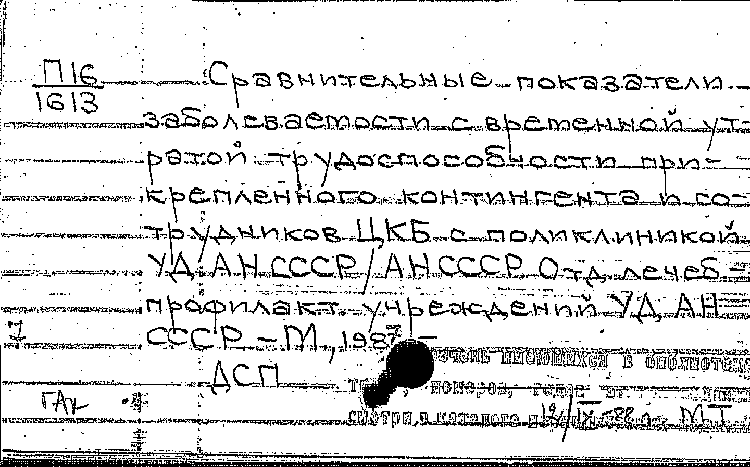 П16
1613
Сравнительные показатели
заболеваемости с временной ут-
ратой трудоспособности при-
крепленного контингента и со-
трудников ЦКБ с поликлиникой
УД АН СССР/АН СССР Отд лечеб-
профилакт. учреждений УД АН
СССР – М., 1987 –
имеющихся в
ДСП
номеров,
ГАК
смотри в каталоге
М.Т.